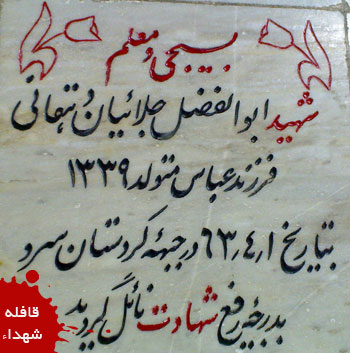 بسیجی و معلم
شهید ابوالفضل جلائیان دهقانی
فرزند عباس متولد ۱۳۳۹
بتاریخ ۶۳٫۴٫۱ در جبهه کردستان سرو
بدرجه رفیع شهادت نائل گردید
قافله
شهداء